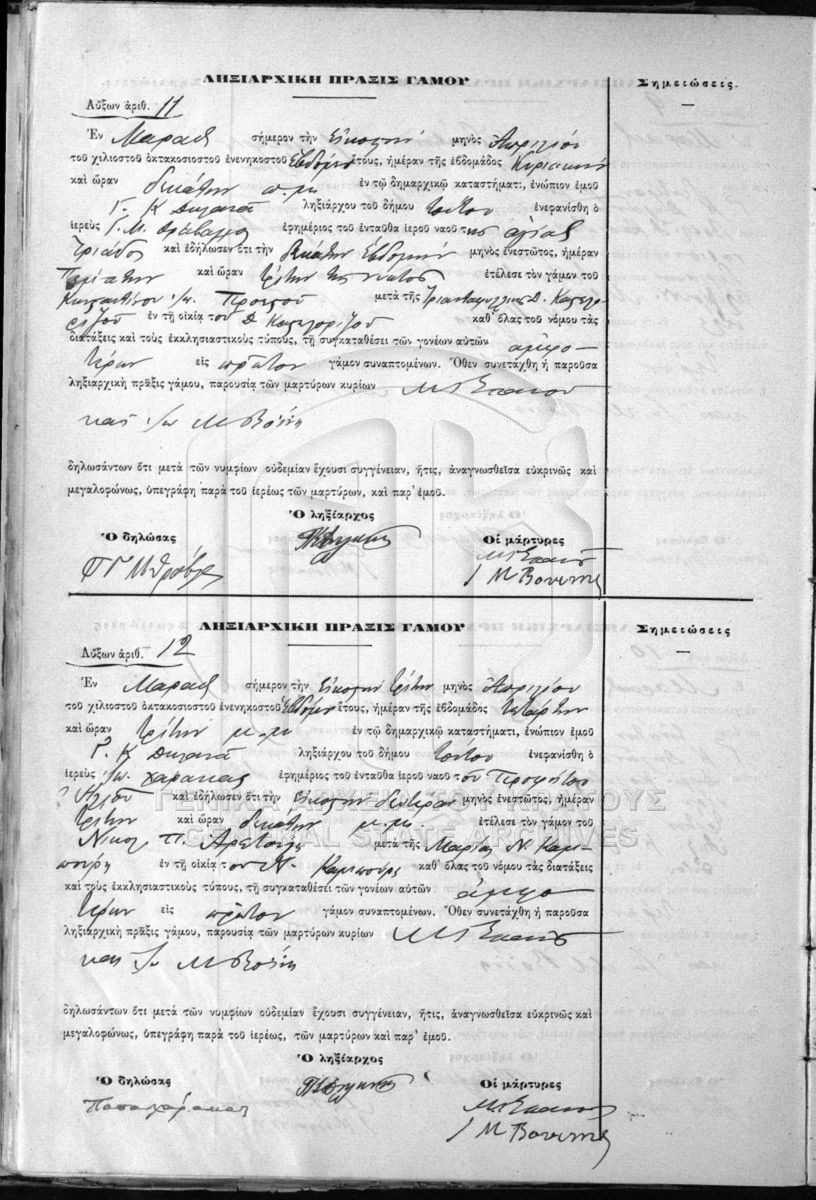 ΛΗΞΙΑΡΧΙΚΗ ΠΡΑΞΙΣ ΓΑΜΟΥ
Σημειώσεις
Αὔξων ἀριθ. 11
Ἐν σήμερον τὴν Εἰκοστὴν μηνὸς Ἀπριλίου
τοῦ χιλιοστοῦ ὀκτακοσιοστοῦ ἐνενηκοστοῦ Ἑβδόμου ἔτους, ἡμέραν τῆς ἑβδομάδος Κυριακὴν
καὶ ὥραν δεκάτην π.μ. ἐν τῷ δημαρχικῷ καταστήματι, ἐνώπιον ἐμοῦ
Γ. Κ. ληξιάρχου τοῦ δήμου τούτου ἐνεφανίσθη ὁ
ἱερεὺς Γ. Μ. ἐφημέριος τοῦ ἐνταῦθα ἱεροῦ ναοῦ τῆς ἁγίας
Τριάδος καὶ ἐδήλωσεν ὅτι τὴν δεκάτην Ἑβδόμην μηνὸς ἐνεστῶτος, ἡμέραν
καὶ ὥραν τρίτην τῆς νυκτὸς ἐτέλεσε τὸν γάμον τοῦ
Κωνσταντίνου Ἰω. μετὰ τῆς Τριανταφυλλιᾶς Δ.
ἐν τῇ οἰκίᾳ τοῦ Δ. καθ' ὅλας τοῦ νόμου τὰς
διατάξεις καὶ τοὺς ἐκκλησιαστικοὺς τύπους, τῇ συγκαταθέσει τῶν γονέων αὐτῶν ἀμφο-
τέρων εἰς πρῶτον γάμον συναπτομένων. Ὅθεν συνετάχθη ἡ παροῦσα
ληξιαρχικὴ πρᾶξις γάμου, παρουσίᾳ τῶν μαρτύρων κυρίων
καὶ Ἰω. Μ.
δηλωσάντων ὅτι μετὰ τῶν νυμφίων οὐδεμίαν ἔχουσι συγγένειαν, ἥτις, ἀναγνωσθεῖσα εὐκρινῶς καὶ
μεγαλοφώνως, ὑπεγράφη παρὰ τοῦ ἱερέως τῶν μαρτύρων, καὶ παρ' ἐμοῦ.
Ὁ ληξίαρχος
Ὁ δηλώσας
Οἱ μάρτυρες
ΛΗΞΙΑΡΧΙΚΗ ΠΡΑΞΙΣ ΓΑΜΟΥ
Σημειώσεις
Αὔξων ἀριθ. 12
Ἐν σήμερον τὴν Εἰκοστὴν τρίτην μηνὸς Ἀπριλίου
τοῦ χιλιοστοῦ ὀκτακοσιοστοῦ ἐνενηκοστοῦ Ἑβδόμου ἔτους, ἡμέραν τῆς ἑβδομάδος τετάρτην
καὶ ὥραν τρίτην μ.μ. ἐν τῷ δημαρχικῷ καταστήματι, ἐνώπιον ἐμοῦ
Γ. Κ. ληξιάρχου τοῦ δήμου τούτου ἐνεφανίσθη ὁ
ἱερεὺς Ἰω. Χαρακᾶς ἐφημέριος τοῦ ἐνταῦθα ἱεροῦ ναοῦ τοῦ Προφήτου
Ἠλιοῦ καὶ ἐδήλωσεν ὅτι τὴν εἰκοστὴν δευτέραν μηνὸς ἐνεστῶτος, ἡμέραν
τρίτην καὶ ὥραν δεκάτην μ.μ. ἐτέλεσε τὸν γάμον τοῦ
Νικολ. Π. μετὰ τῆς Μαρίας Ν. Καμ-
πούρη ἐν τῇ οἰκίᾳ τοῦ Ν. Καμπούρη καθ' ὅλας τοῦ νόμου τὰς διατάξεις
καὶ τοὺς ἐκκλησιαστικοὺς τύπους, τῇ συγκαταθέσει τῶν γονέων αὐτῶν ἀμφο-
τέρων εἰς πρῶτον γάμον συναπτομένων. Ὅθεν συνετάχθη ἡ παροῦσα
ληξιαρχικὴ πρᾶξις γάμου, παρουσίᾳ τῶν μαρτύρων κυρίων
καὶ Ἰω. Μ.
δηλωσάντων ὅτι μετὰ τῶν νυμφίων οὐδεμίαν ἔχουσι συγγένειαν, ἥτις, ἀναγνωσθεῖσα εὐκρινῶς καὶ
μεγαλοφώνως, ὑπεγράφη παρὰ τοῦ ἱερέως, τῶν μαρτύρων καὶ παρ' ἐμοῦ.
Ὁ ληξίαρχος
Ὁ δηλώσας
Οἱ μάρτυρες
Παπαχαρακᾶς
ΓΕΝΙΚΑ ΑΡΧΕΙΑ ΤΟΥ ΚΡΑΤΟΥΣ
GENERAL STATE ARCHIVES